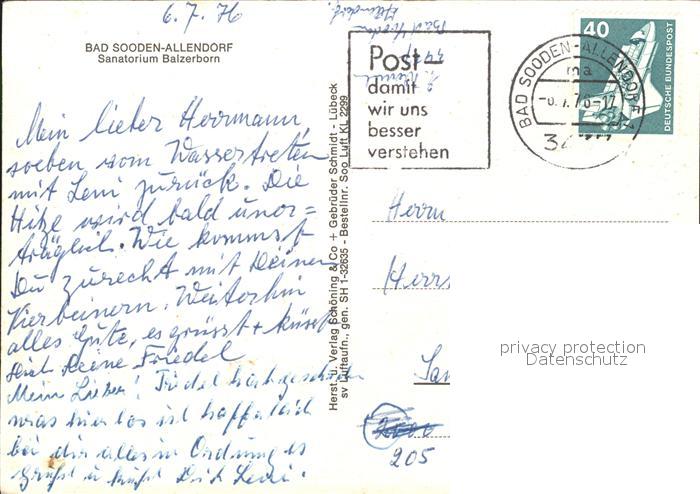 6.7.76
BAD SOODEN-ALLENDORF
Sanatorium Balzerborn
Mein lieber Herrmann,
soeben vom Wassertreten
mit Leni zurück. Die
Hitze wird bald uner=
träglich. Wie kommst
Du zurecht mit Deinen
Vierbeinern. Weiterhin
alles Gute, es grüsst + küsst
Dich Deine Friedel
Mein Lieber! Friedel hat geschrieben
was hier los ist hoffentlich
bei dir alles in Ordnung es
grüßt u küßt Dich Leni.
Herst. u. Verlag Schöning & Co + Gebrüder Schmidt - Lübeck
sv Luftaufn., gen. SH 1-32635 - Bestellnr. Soo Luft KL 2299
Bad Sooden
Allendorf
Post—
damit
wir uns
besser
verstehen
BAD SOODEN-ALLENDORF
ma
-6.7.76-17
40
DEUTSCHE BUNDESPOST
Herrn
privacy protection
Datenschutz
2000
205